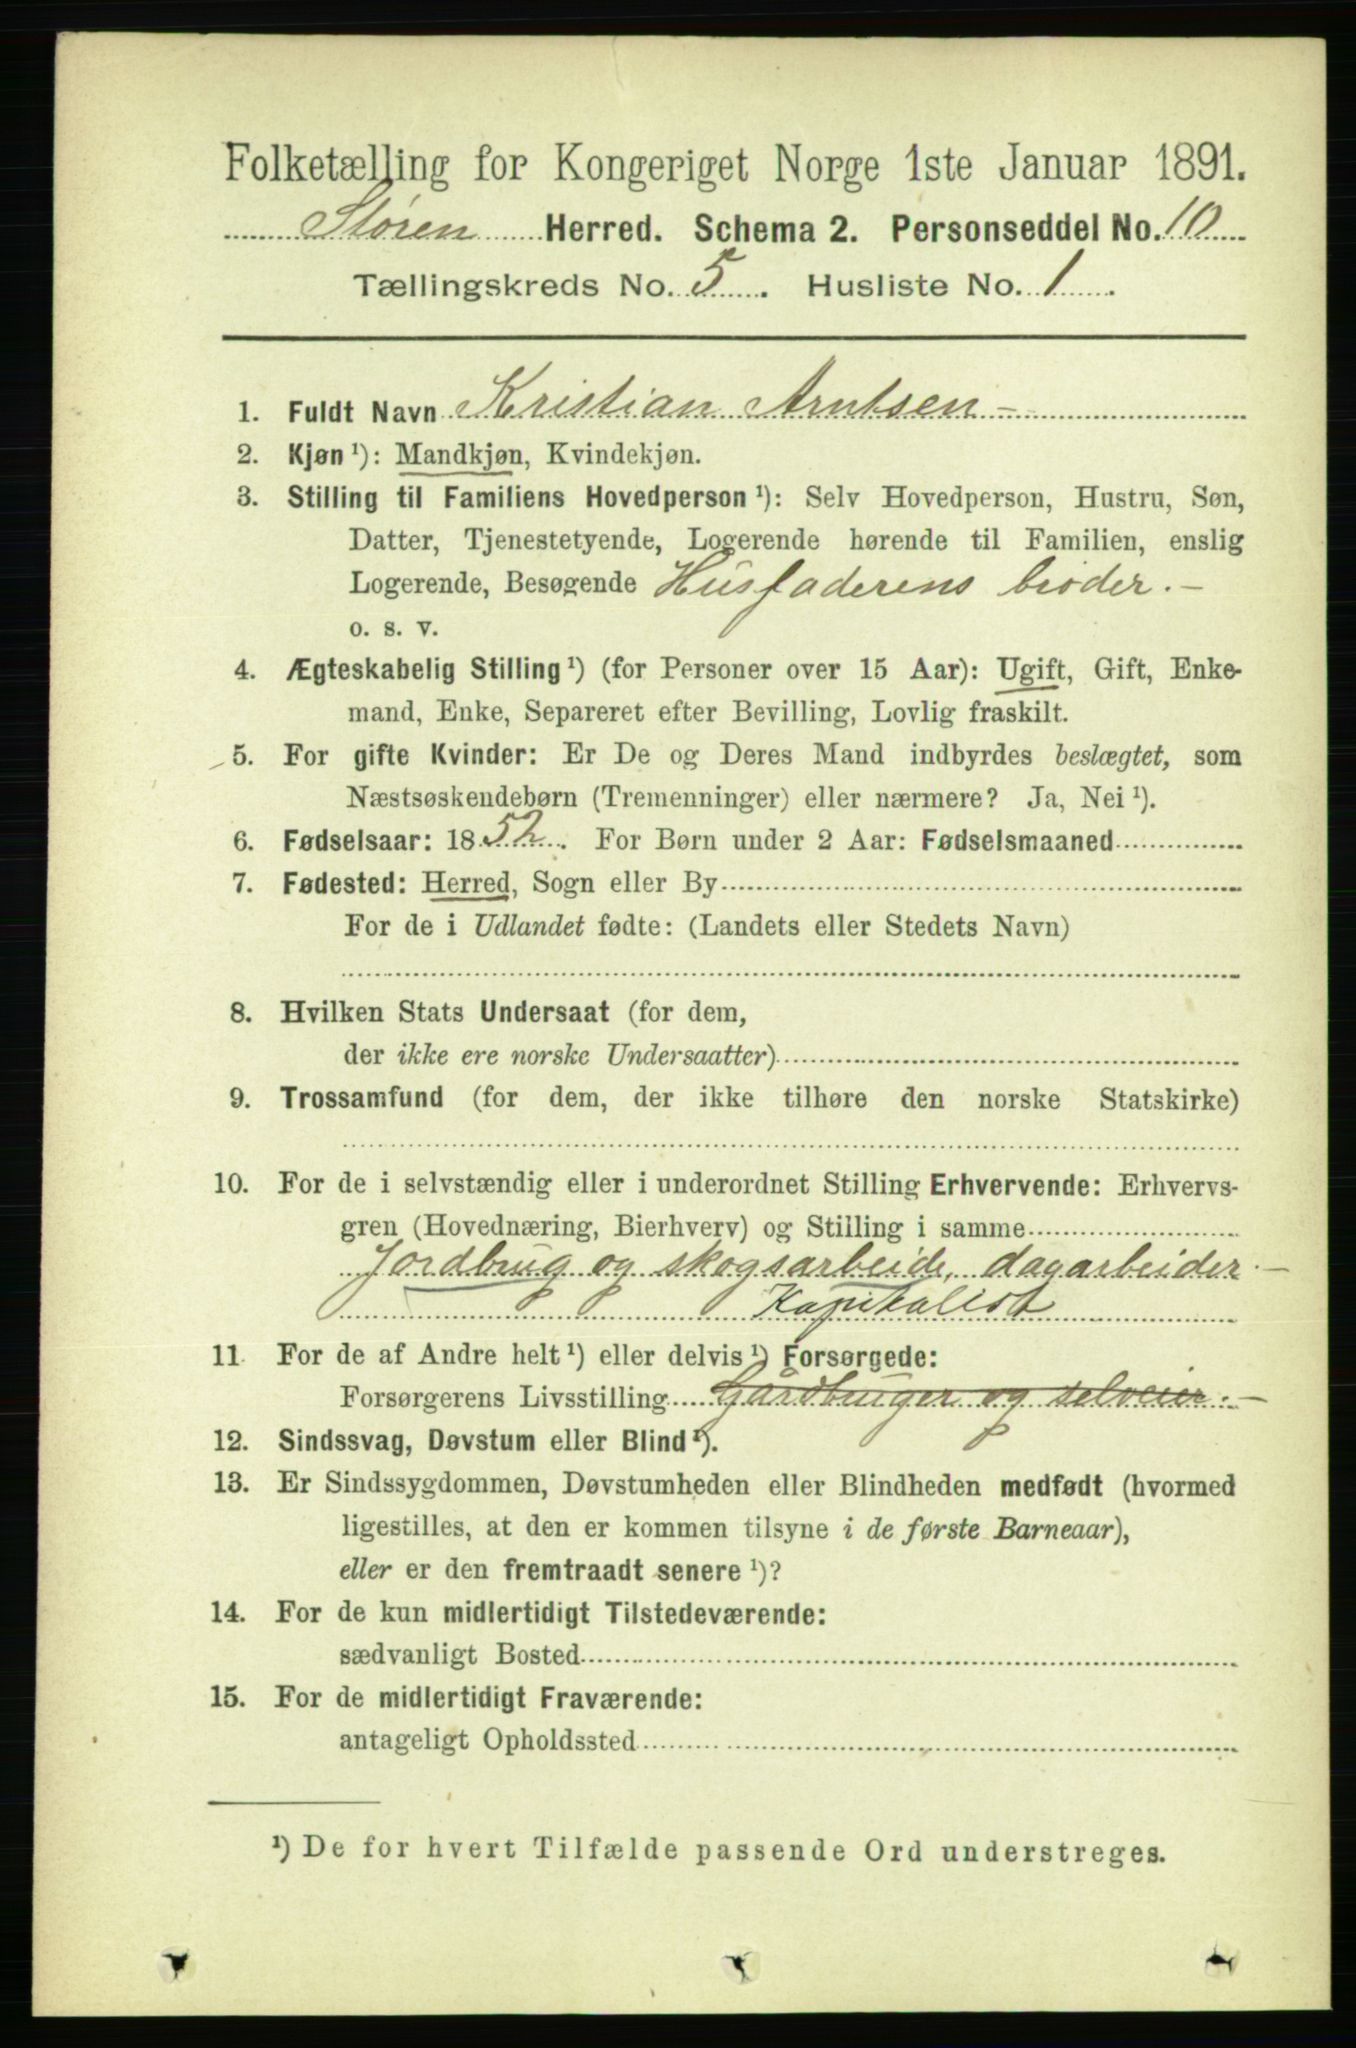 Folketælling for Kongeriget Norge 1ste Januar 1891.
Støren Herred. Schema 2. Personseddel No. 10
Tællingskreds No. 5. Husliste No. 1.
1. Fuldt Navn Kristian Arntsen -
2. Kjøn ¹): Mandkjøn, Kvindekjøn.
3. Stilling til Familiens Hovedperson ¹): Selv Hovedperson, Hustru, Søn,
Datter, Tjenestetyende, Logerende hørende til Familien, enslig
Logerende, Besøgende Husfaderens broder. -
o. s. v.
4. Ægteskabelig Stilling ¹) (for Personer over 15 Aar): Ugift, Gift, Enke-
mand, Enke, Separeret efter Bevilling, Lovlig fraskilt.
5. For gifte Kvinder: Er De og Deres Mand indbyrdes beslægtet, som
Næstsøskendebørn (Tremenninger) eller nærmere? Ja, Nei ¹).
6. Fødselsaar: 1852. For Børn under 2 Aar: Fødselsmaaned
7. Fødested: Herred, Sogn eller By
For de i Udlandet fødte: (Landets eller Stedets Navn)
8. Hvilken Stats Undersaat (for dem,
der ikke ere norske Undersaatter)
9. Trossamfund (for dem, der ikke tilhøre den norske Statskirke)
10. For de i selvstændig eller i underordnet Stilling Erhvervende: Erhvervs-
gren (Hovednæring, Bierhverv) og Stilling i samme
Jordbrug og skogsarbeide, dagarbeider. -
Kapitalist
11. For de af Andre helt ¹) eller delvis ¹) Forsørgede:
Forsørgerens Livsstilling Gårdbruger og selveier. -
12. Sindssvag, Døvstum eller Blind ¹).
13. Er Sindssygdommen, Døvstumheden eller Blindheden medfødt (hvormed
ligestilles, at den er kommen tilsyne i de første Barneaar),
eller er den fremtraadt senere ¹)?
14. For de kun midlertidigt Tilstedeværende:
sædvanligt Bosted
15. For de midlertidigt Fraværende:
antageligt Opholdssted
¹) De for hvert Tilfælde passende Ord understreges.